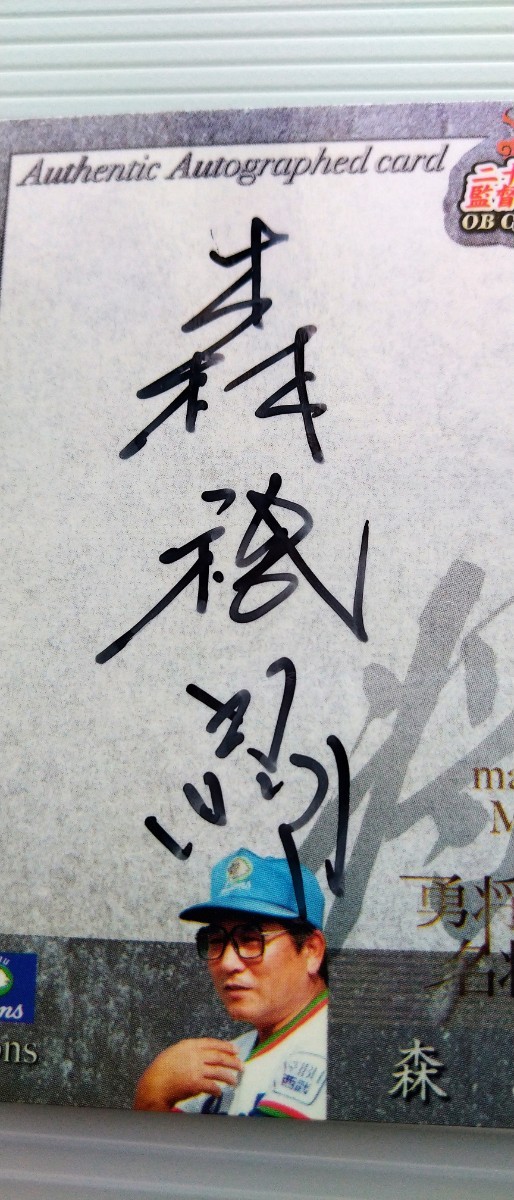 Authentic Autographed card
二十
監督
OB C
森
祇
晶
ma
M
勇将
名将
ns
ons
西武
森